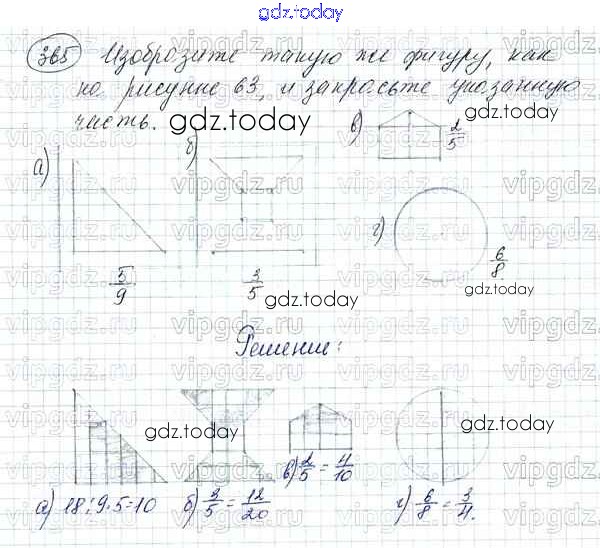 gdz.today
365 Изобразите такую же фигуру, как
на рисунке 63, и закрасьте указанную
часть. gdz.today
а) б) в) 2/5
г) 6/8
5/9 3/5
gdz.today
gdz.today
Решение:
gdz.today
gdz.today
gdz.today
а) 18:9·5=10 б) 3/5 = 12/20 в) 2/5 = 4/10 г) 6/8 = 3/4.
vipgdz.ru